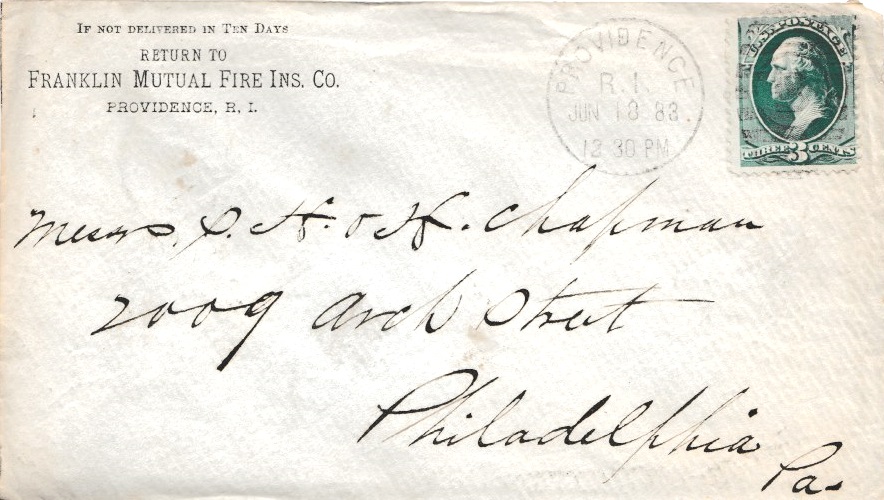 IF NOT DELIVERED IN TEN DAYS
RETURN TO
FRANKLIN MUTUAL FIRE INS. CO.
PROVIDENCE, R. I.
PROVIDENCE
R. I.
JUN 18 83.
12 30 PM
U.S. POSTAGE
THREE 3 CENTS
Messrs. S. H. & H. Chapman
2009 Arch Street
Philadelphia
Pa.